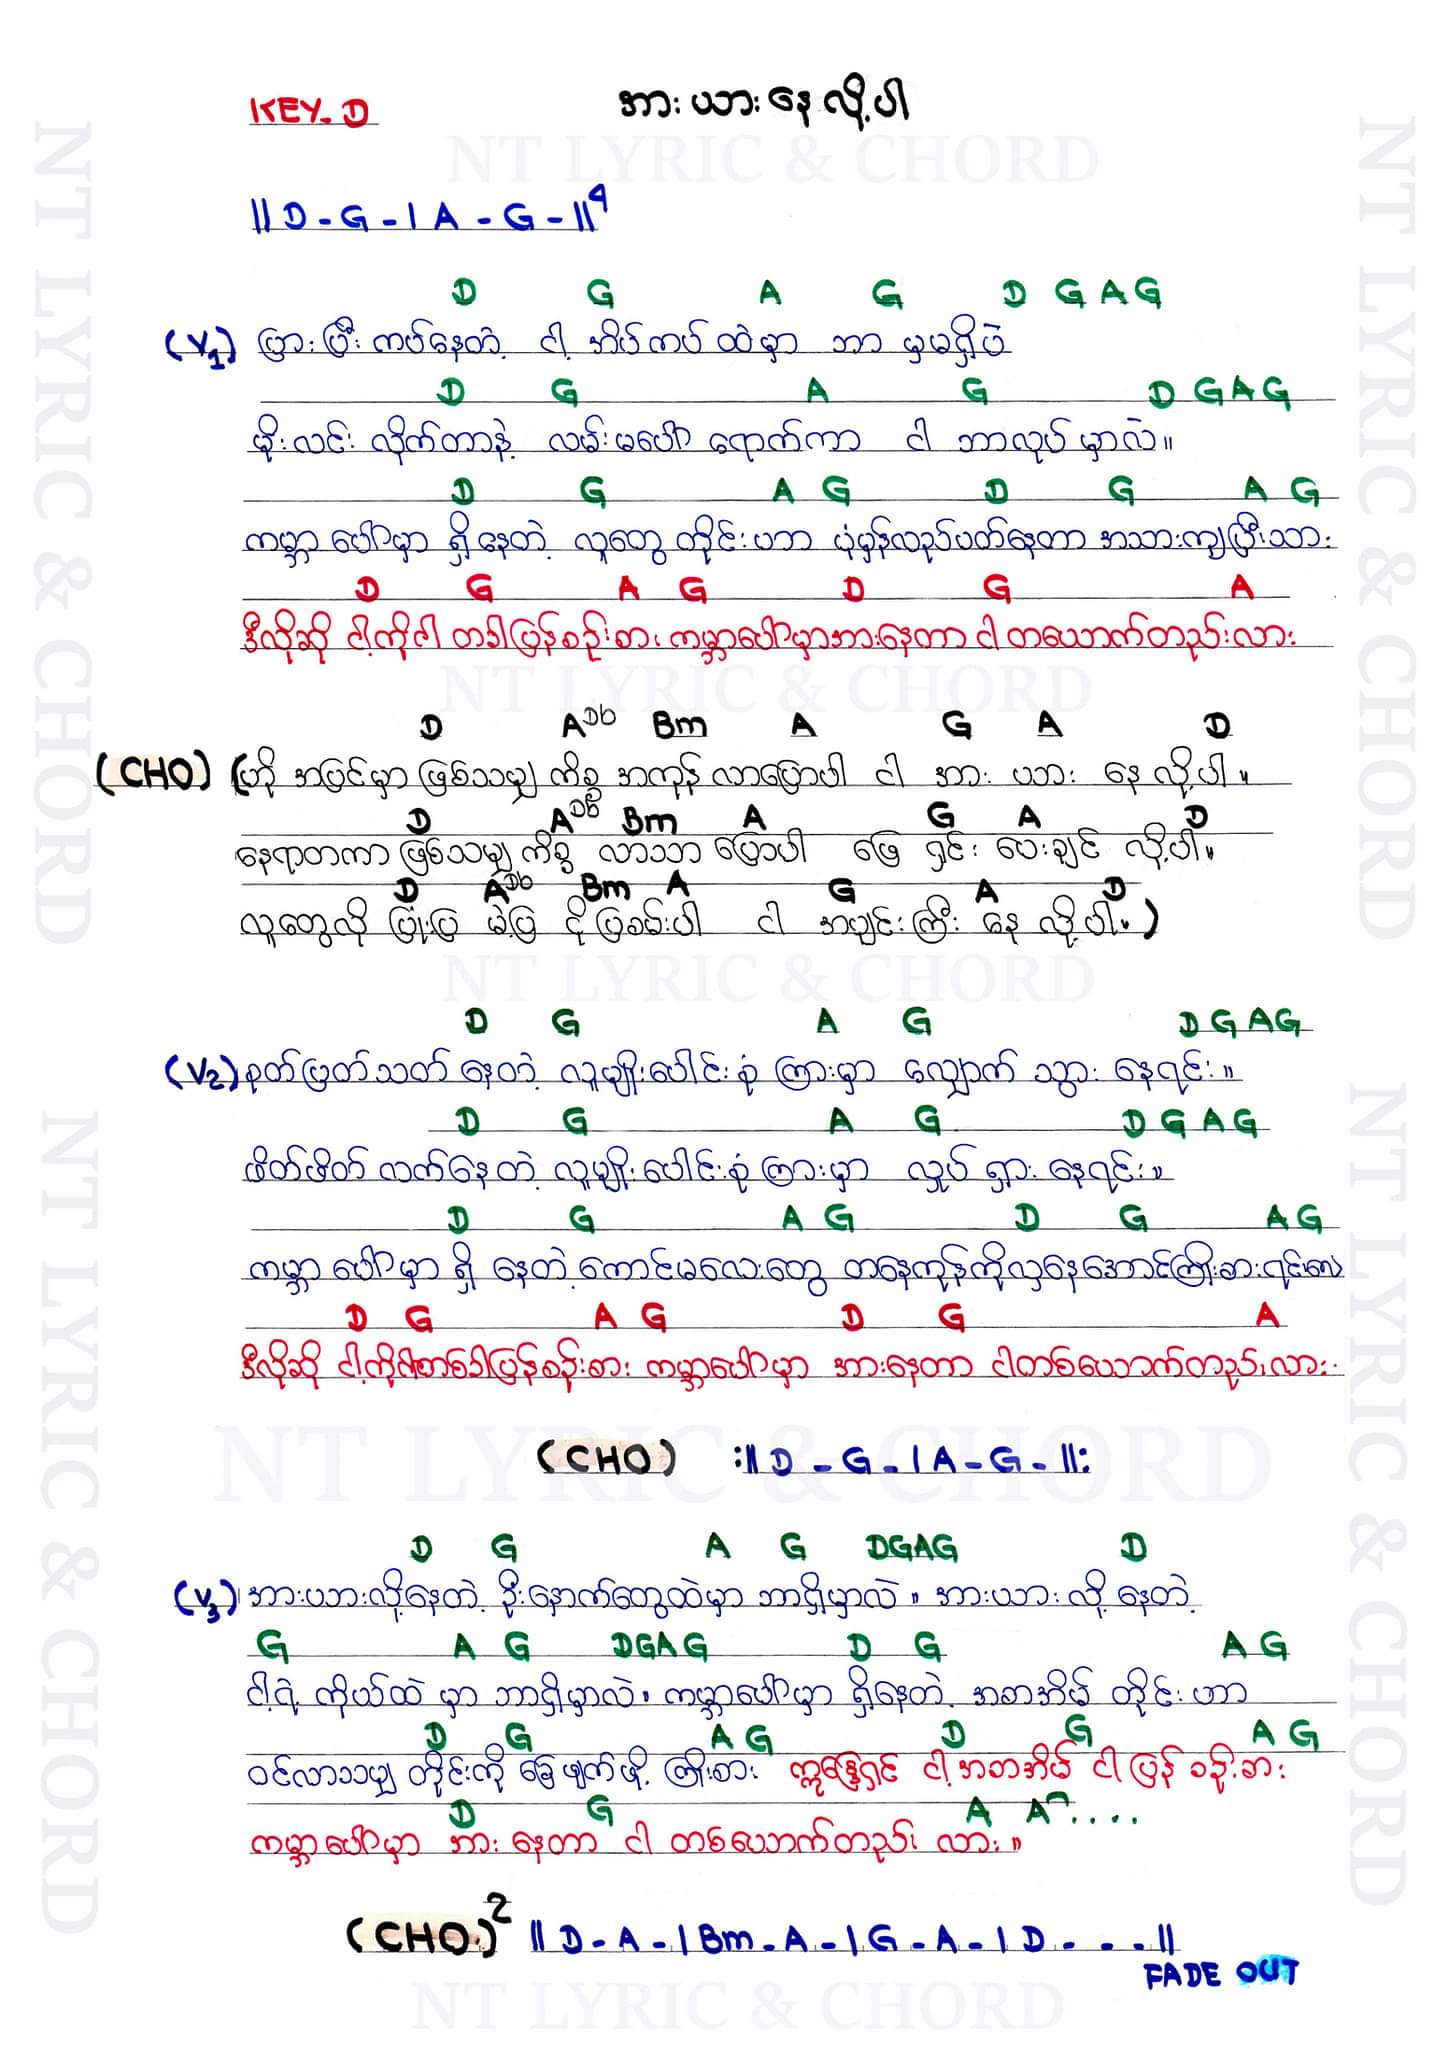 KEY-D
အားယားနေလို့ပါ
NT LYRIC & CHORD
|| D - G - | A - G - ||4
D G A G D G A G
(V1) ပြားပြီးကပ်နေတဲ့ ငါ့အိပ်ကပ်ထဲမှာ ဘာမှမရှိပဲ
D G A G D G A G
မိုးလင်းလိုက်တာနဲ့ လမ်းမပေါ်ရောက်ကာ ငါ ဘာလုပ်မှာလဲ။
D G A G D G A G
ကမ္ဘာပေါ်မှာ ရှိနေတဲ့ လူတွေတိုင်းဟာ ပုံမှန်လည်ပတ်နေတာ အသားကျပြီးသား
D G A G D G A
ဒီလိုဆို ငါ့ကိုငါ တခါပြန်စဉ်းစား ကမ္ဘာပေါ်မှာအားနေတာ ငါတယောက်တည်းလား
NT LYRIC & CHORD
D ADb Bm A G A D
(CHO) (ဟို အပြင်မှာ ဖြစ်သမျှ ကိစ္စ အကုန်လာပြောပါ ငါ အားယားနေလို့ပါ။
D ADb Bm A G A D
နေရာတကာ ဖြစ်သမျှ ကိစ္စ လာသာပြောပါ ဖြေရှင်းပေးချင်လို့ပါ။
D ADb Bm A G A D
လူတွေလို ပြုံးပြ မဲ့ပြ ငိုပြစမ်းပါ ငါ အပျင်းကြီးနေလို့ပါ။)
NT LYRIC & CHORD
D G A G D G A G
(V2) စုတ်ပြတ်သတ်နေတဲ့ လူမျိုးပေါင်းစုံကြားမှာ လျှောက်သွားနေရင်း။
D G A G D G A G
ဖိတ်ဖိတ်လက်နေတဲ့ လူမျိုးပေါင်းစုံကြားမှာ လှုပ်ရှားနေရင်း။
D G A G D G A G
ကမ္ဘာပေါ်မှာ ရှိနေတဲ့ ကောင်မလေးတွေ တနေကုန်ကိုလှနေအောင်ကြိုးစားရင်းပေ
D G A G D G A
ဒီလိုဆို ငါ့ကိုငါတစ်ခါပြန်စဉ်းစား ကမ္ဘာပေါ်မှာ အားနေတာ ငါတစ်ယောက်တည်းလား
NT LYRIC & CHORD
(CHO) :|| D - G - | A - G - ||:
D G A G DGAG D
(V3) အားယားလို့နေတဲ့ ဦးနှောက်တွေထဲမှာ ဘာရှိမှာလဲ။ အားယားလို့နေတဲ့
G A G DGAG D G A G
ငါ့ရဲ့ ကိုယ်ထဲမှာ ဘာရှိမှာလဲ။ ကမ္ဘာပေါ်မှာ ရှိနေတဲ့ အစာအိမ်တိုင်းဟာ
D G A G D G A G
ဝင်လာသမျှ တိုင်းကို ခြေဖျက်ဖို့ ကြိုးစား ဣန္ဒြေရှင် ငါ့အစာအိမ် ငါပြန်စဉ်းစား
D G A A ....
ကမ္ဘာပေါ်မှာ အားနေတာ ငါ တစ်ယောက်တည်းလား။
(CHO.)2 || D - A - | Bm - A - | G - A - | D - - - ||
FADE OUT
NT LYRIC & CHORD
NT LYRIC & CHORD
NT LYRIC & CHORD
NT LYRIC & CHORD
NT LYRIC & CHORD